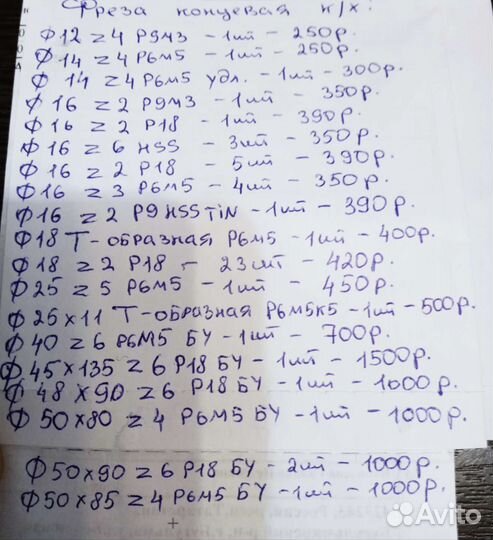 Фреза концевая к/х:
Ф12 z4 Р9М3 - 1шт - 250р.
Ф14 z4 Р6М5 - 1шт - 250р.
Ф 14 z4 Р6М5 удл. - 1шт - 300р.
Ф 16 z2 Р9М3 - 1шт - 350р.
Ф16 z2 Р18 - 1шт - 390р.
Ф16 z6 HSS - 3шт - 350р.
Ф16 z2 Р18 - 5шт - 390р.
Ф16 z3 Р6М5 - 4шт - 350р.
Ф16 z2 Р9HSSTiN - 1шт - 390р.
Ф18 Т-образная Р6М5 - 1шт - 400р.
Ф18 z2 Р18 - 23шт - 420р.
Ф25 z5 Р6М5 - 1шт - 450р.
Ф 25х11 Т-образная Р6М5К5 - 1шт - 500р.
Ф 40 z6 Р6М5 БУ - 1шт - 700р.
Ф45х135 z6 Р18 БУ - 1шт - 1500р.
Ф 48х90 z6 Р18 БУ - 1шт - 1000р.
Ф 50х80 z4 Р6М5 БУ - 1шт - 1000р.
Ф50х90 z6 Р18 БУ - 2шт - 1000р.
Ф50х85 z4 Р6М5 БУ - 1шт - 1000р.
Avito